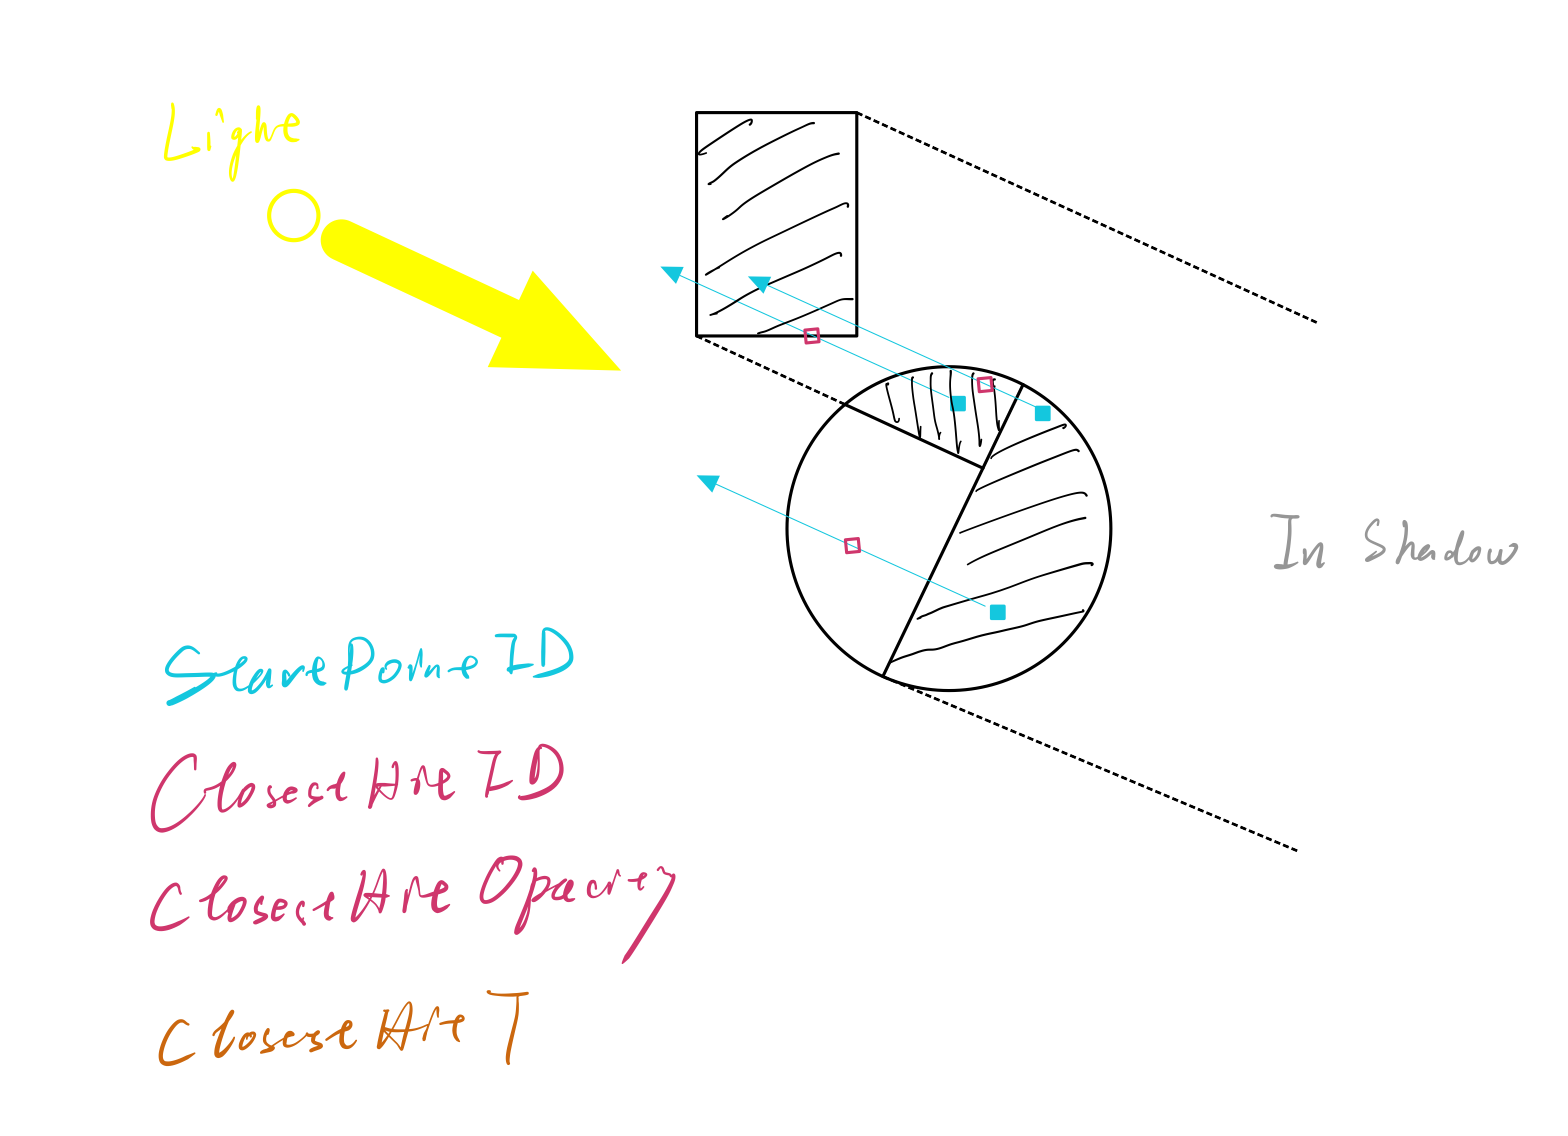 Light
In Shadow
Start Point ID
Closest Hit ID
Closest Hit Opacity
Closest Hit T